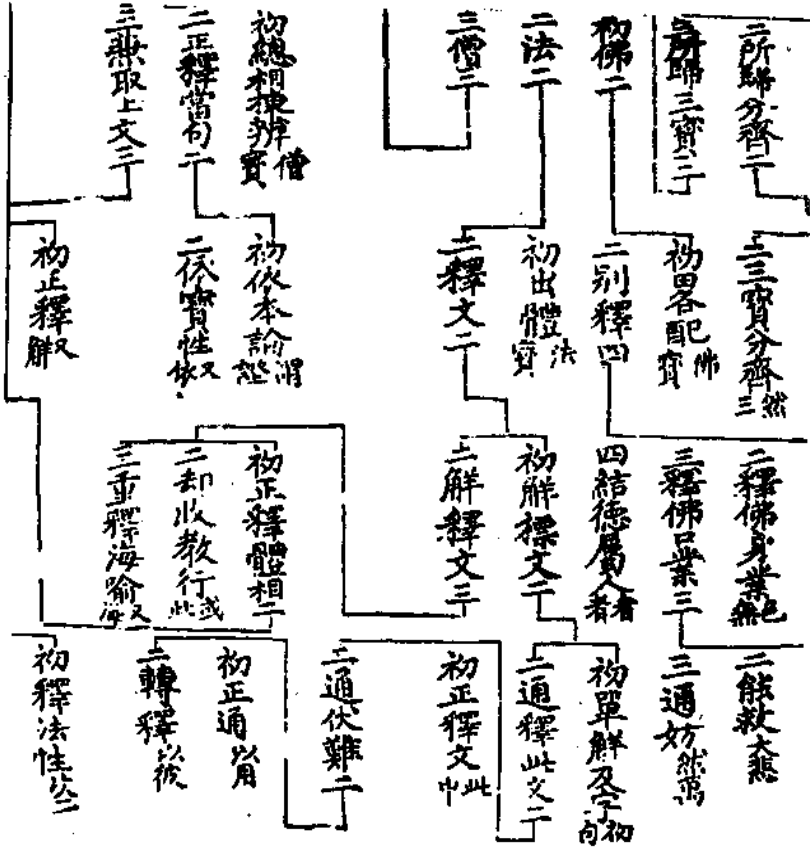 二所歸分齊二
三所歸三寶三
初佛二
二法二
三僧三
初總相揀辨僧寶
二正釋當句二
三兼取上文三
二三寶分齊然三
初田各配佛寶
二別釋四
初出體法寶
二釋文二
初依本論謂
二依寶性又依
初正釋又解
二釋佛身業色無
三釋佛口業三
四結德屬人者者
初解標文二
二解釋文三
初正釋體相二
二却收教行或此
三重釋海喻又海
二能救大悲
三通妨然
初單解及字初句
二通釋此文二
初正釋文此中
二通伏難二
初正通以用
二轉釋以彼
初釋法性